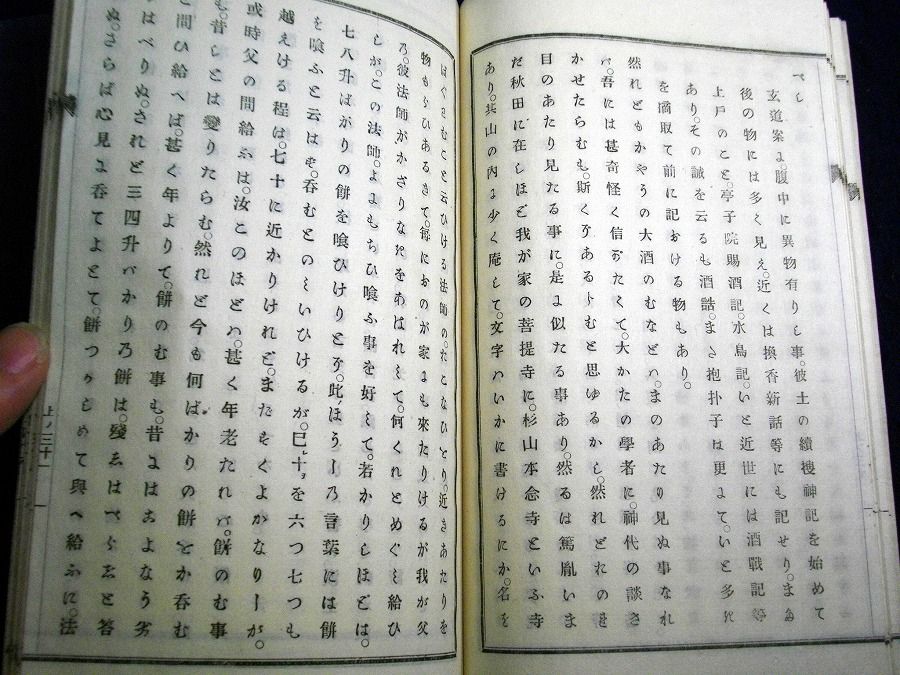 べし
玄道案よ。腹中に異物有りし事。彼土の續捜神記を始めて
後の物には多く見え。近くは換香新話等にも記せり。まゐ
上戸のこと。亭子院賜酒記。水鳥記。いと近世には酒戰記等
あり。その誠を云るも酒誥。まゝ抱扑子は更よて。いと多れ
を摘取て前に記おける物もあり。
然れどもかやうの大酒のむなどハ。まのあたり見ぬ事なれ
バ。吾には甚奇怪く信がたくて。大かたの學者に。神代の談き
かせたらむも。斯くあるらむと思ゆるかし。然れどれのを
目のあたり見たる事に。是よ似たる事あり。然るは篤胤いま
だ秋田に在しほど我が家の菩提寺に。杉山本念寺といふ寺
あり。其山の内よ少く庵して。文字ハいかに書けるにか。名を
はぐさむこと云ひける法師の。たこなひとり。近きあたりを
物もらひあるきて。飾におのが家よも來たりけるが我が父
乃。彼法師がかざりなだをあはれミて。何くれとめぐミ給ひ
しが。この法師。よよもちひ喰ふ事を好ミて。若かりしほどは。
七八升ばかりの餅を喰ひけりとぞ。此ほうしの言葉には餅
を喰ふと云はず。呑むとのミいひけるが。巳ニ十を六つ七つも
越えける程は。七十に近かりけれど。またすくよかなりしが。
或時父の問給ふは。汝このほどハ。甚く年老たれバ。餅のむ事
も。昔しとは變りたらむ。然れど今も何ばかりの餅をか呑む
と問ひ給へば。甚く年よりて。餅のむ事も。昔よはちよなう劣
はべりぬ。されど三四升バかり乃餅は。殘ゑはべらゑと答
ぬ。さらば心見よ呑てよとて。餅つかしめて與へ給ふに。法
上ノ三十一